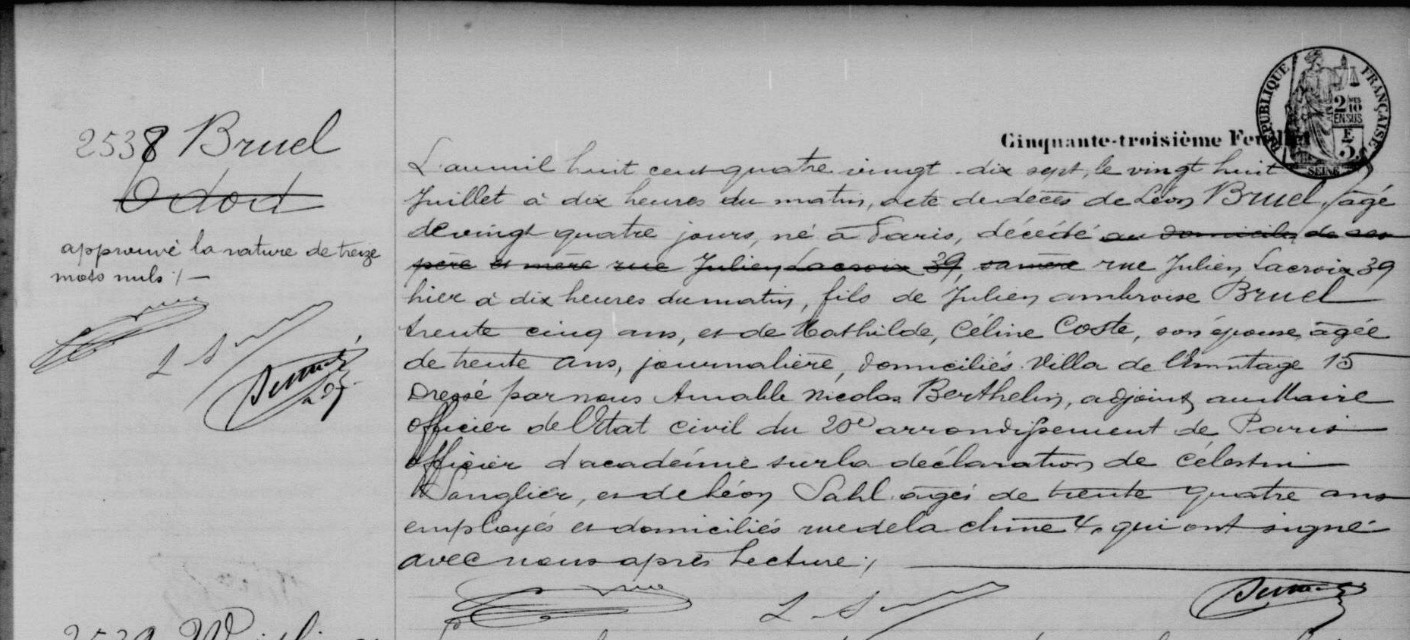 Cinquante-troisième Feuillet
RÉPUBLIQUE FRANÇAISE
2 10
EN SUS
SEINE
2538 Bruel
approuvé la rature de treize
mots nuls ;
L'an mil huit cent quatre vingt dix sept, le vingt huit
Juillet à dix heures du matin, acte de décès de Léon Bruel, âgé
de vingt quatre jours, né à Paris, décédé au domicile de ses
père et mère rue Julien Lacroix 39, sa mère rue Julien Lacroix 39
hier à dix heures du matin, fils de Julien ambroise Bruel
trente cinq ans, et de Mathilde, Céline Coste, son épouse, âgée
de trente ans, journalière, domiciliés Villa de l'Ermitage 15
Dressé par nous Amable Nicolas Berthelin, adjoint auxiliaire
officier de l'Etat civil du 20e arrondissement de Paris
officier d'académie sur la déclaration de Célestin
et de Léon Sahl âgés de trente quatre ans
employés et domiciliés rue de la chine 4, qui ont signé
avec nous après lecture ;
L S
L S
2539